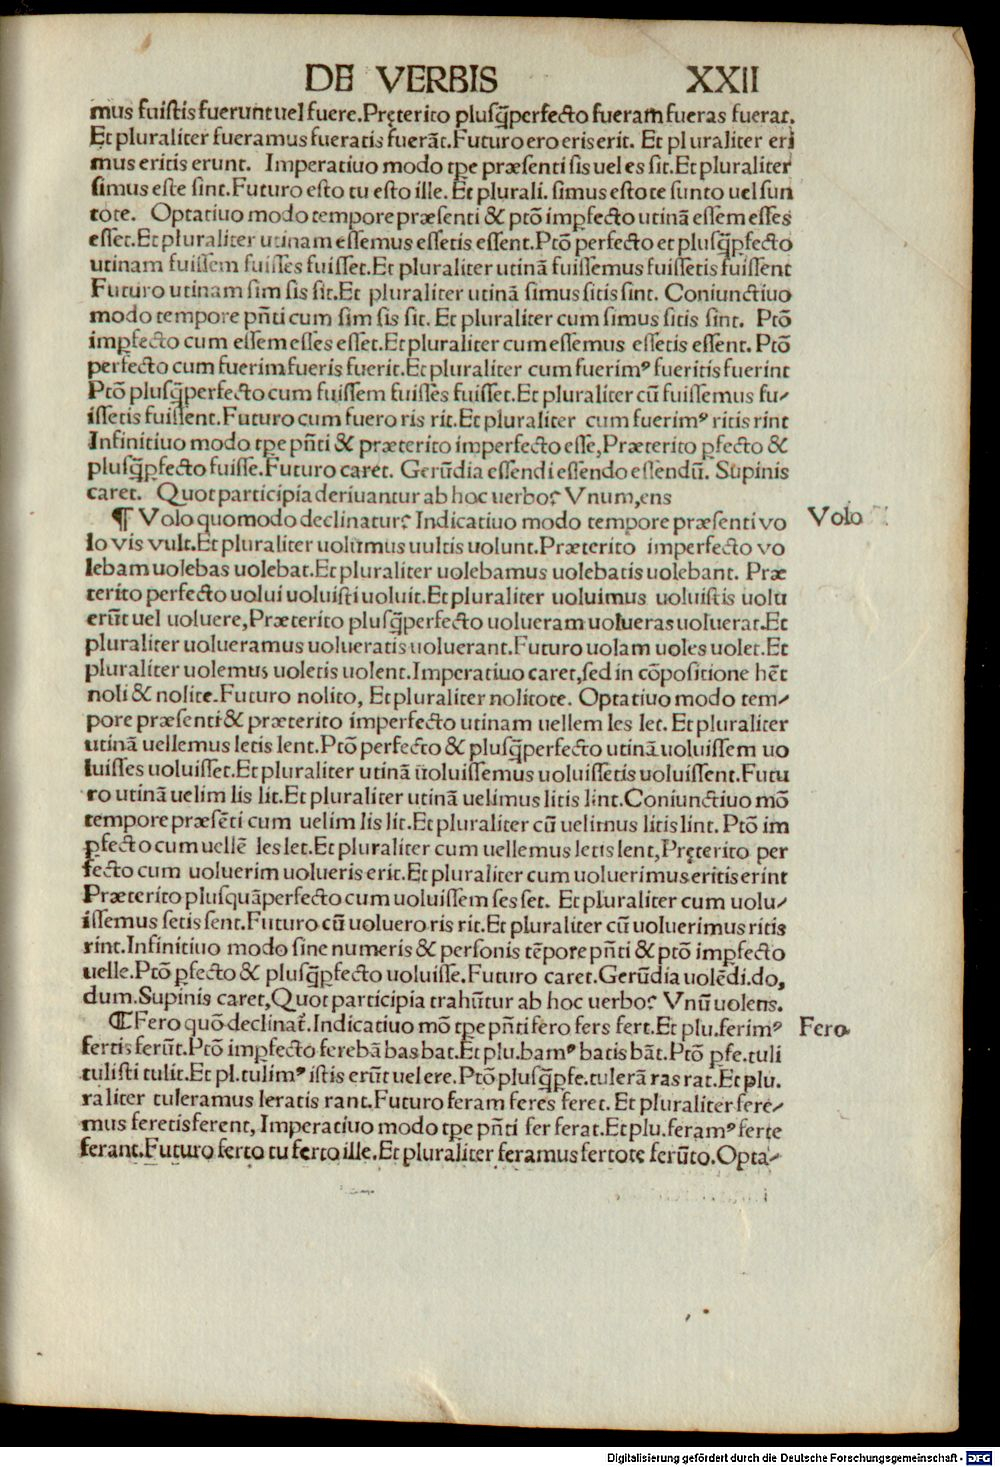 DE VERBIS XXII
mus fuiſtis fuerunt uel fuere.Pręterito pluſq̃perfecto fueram fueras fuerat.
Et pluraliter fueramus fueratis fuerāt.Futuro ero eris erit. Et pluraliter eri
mus eritis erunt. Imperatiuo modo tp̱e præſenti sis uel es ſit.Et pluraliter
ſimus eſte ſint.Futuro eſto tu eſto ille. Et plurali. ſimus eſtote ſunto uel ſun
tote. Optatiuo modo tempore præſenti & ptō imp̱fecto utinā eſſem eſſes
eſſet.Et pluraliter utinam eſſemus eſſetis eſſent.Ptō perfecto et pluſq̃p̱fecto
utinam fuiſſem fuiſſes fuiſſet.Et pluraliter utinā fuiſſemus fuiſſetis fuiſſent
Futuro utinam ſim ſis ſit.Et pluraliter utinā ſimus ſitis ſint. Coniunctiuo
modo tempore pñti cum ſim ſis ſit. Et pluraliter cum ſimus ſitis ſint. Ptō
imp̱fecto cum eſſem eſſes eſſet.Et pluraliter cum eſſemus eſſetis eſſent. Ptō
perfecto cum fuerim fueris fuerit.Et pluraliter cum fuerimꝰ fueritis fuerint
Ptō pluſq̃perfecto cum fuiſſem fuiſſes fuiſſet.Et pluraliter cū fuiſſemus fu⸗
iſſetis fuiſſent.Futuro cum fuero ris rit.Et pluraliter cum fuerimꝰ ritis rint
Infinitiuo modo tp̱e pñti & præterito imperfecto eſſe,Præterito p̱fecto &
pluſq̃p̱fecto fuiſſe.Futuro caret. Gerūdia eſſendi eſſendo eſſendū. Supinis
caret. Quot participia deriuantur ab hoc uerbo? Vnum,ens
¶ Volo quomodo declinatur? Indicatiuo modo tempore præſenti vo Volo
lo vis vult.Et pluraliter uolumus uultis uolunt.Præterito imperfecto vo
lebam uolebas uolebat.Et pluraliter uolebamus uolebatis uolebant. Præ
terito perfecto uolui uoluiſti uoluit.Et pluraliter uoluimus uoluiſtis uolu
erūt uel uoluere,Præterito pluſq̃perfecto uolueram uolueras uoluerat.Et
pluraliter uolueramus uolueratis uoluerant.Futuro uolam uoles uolet.Et
pluraliter uolemus uoletis uolent.Imperatiuo caret,ſed in cōpoſitione hēt
noli & nolite.Futuro nolito, Et pluraliter nolitote. Optatiuo modo tem⸗
pore præſenti & præterito imperfecto utinam uellem les let. Et pluraliter
utinā uellemus letis lent.Ptō perfecto & pluſq̃perfecto utinā uoluiſſem uo
luiſſes uoluiſſet.Et pluraliter utinā uoluiſſemus uoluiſſetis uoluiſſent.Futu
ro utinā uelim lis lit.Et pluraliter utinā uelimus litis lint.Coniunctiuo mō
tempore præſēti cum uelim lis lit.Et pluraliter cū uelimus litis lint. Ptō im
p̱fecto cum uellē les let.Et pluraliter cum uellemus letis lent,Pręterito per
fecto cum uoluerim uolueris erit.Et pluraliter cum uoluerimus eritis erint
Præterito pluſquāperfecto cum uoluiſſem ſes ſet. Et pluraliter cum uolu⸗
iſſemus ſetis ſent.Futuro cū uoluero ris rit.Et pluraliter cū uoluerimus ritis
rint.Infinitiuo modo ſine numeris & perſonis tēpore pñti & ptō imp̱fecto
uelle.Ptō p̱fecto & pluſq̃p̱fecto uoluiſſe.Futuro caret.Gerūdia uolēdi.do,
dum.Supinis caret,Quot participia trahūtur ab hoc uerbo? Vnū uolens.
¶ Fero quō declinat̄.Indicatiuo mō tp̱e pñti fero fers fert.Et plu.ferimꝰ Fero
fertis ferūt.Ptō imp̱fecto ferebā bas bat.Et plu.bamꝰ batis bāt.Ptō p̱fe.tuli
tuliſti tulit.Et pl.tulimꝰ iſtis erūt uel ere.Ptō pluſq̃p̱fe.tulerā ras rat.Et plu.
raliter tuleramus leratis rant.Futuro feram feres feret. Et pluraliter fere⸗
mus feretis ferent, Imperatiuo modo tp̱e pñti fer ferat.Et plu.feramꝰ ferte
ferant.Futuro ferto tu ferto ille.Et pluraliter feramus fertote ferūto.Opta⸗
Digitalisierung gefördert durch die Deutsche Forschungsgemeinschaft - DFG